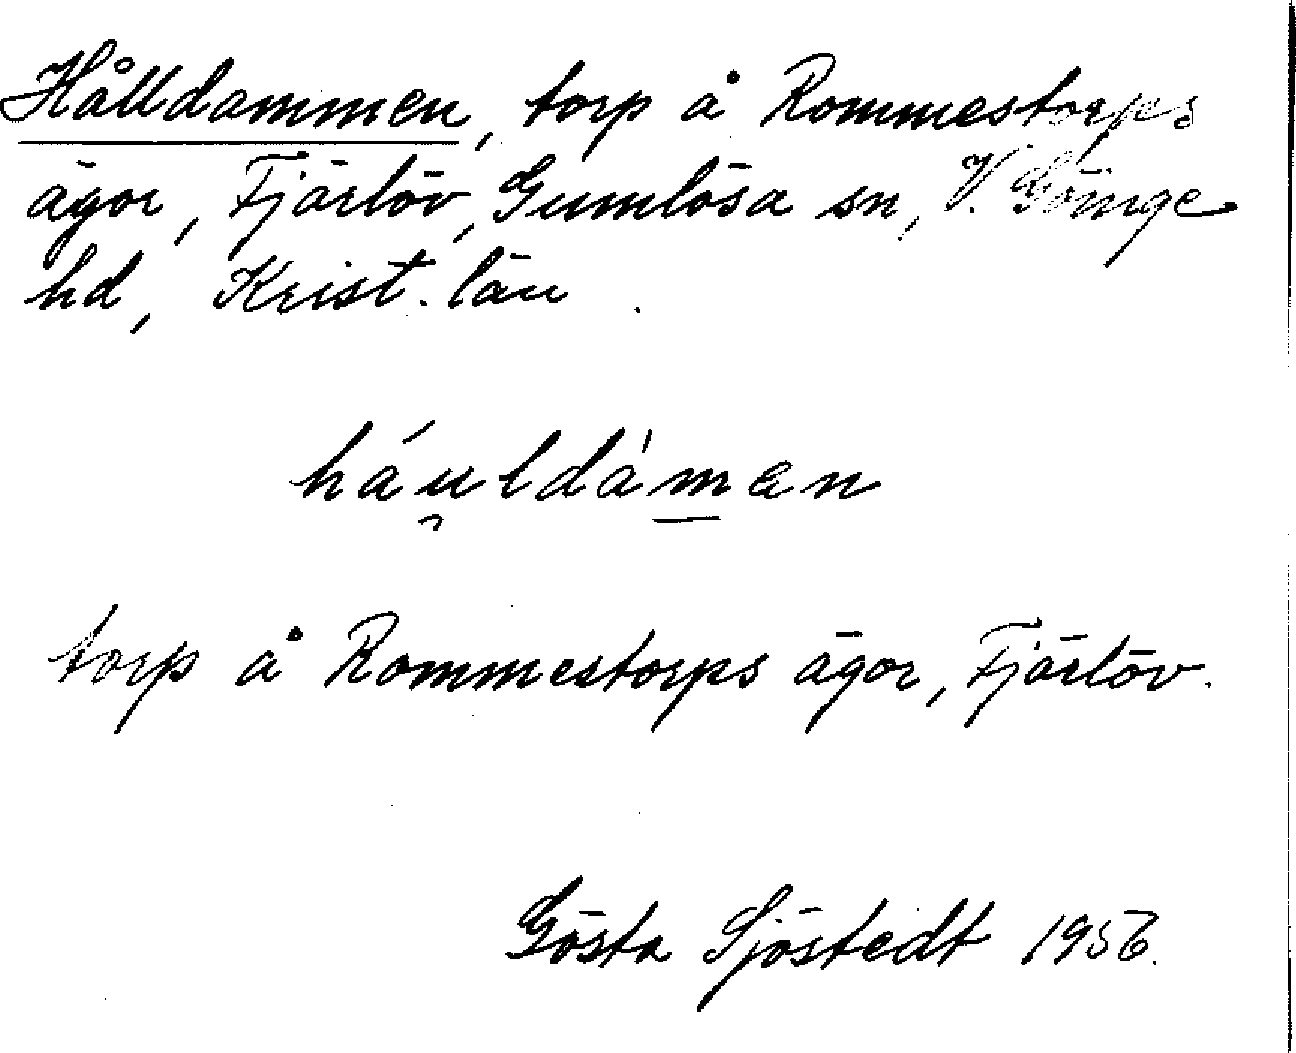 Hålldammen, torp å Rommestorps
ägor, Fjärlöv, Gumlösa sn, V. Göinge
hd, Krist. län
háu̯ldàm̲en
torp å Rommestorps ägor, Fjärlöv.
Gösta Sjöstedt 1956.